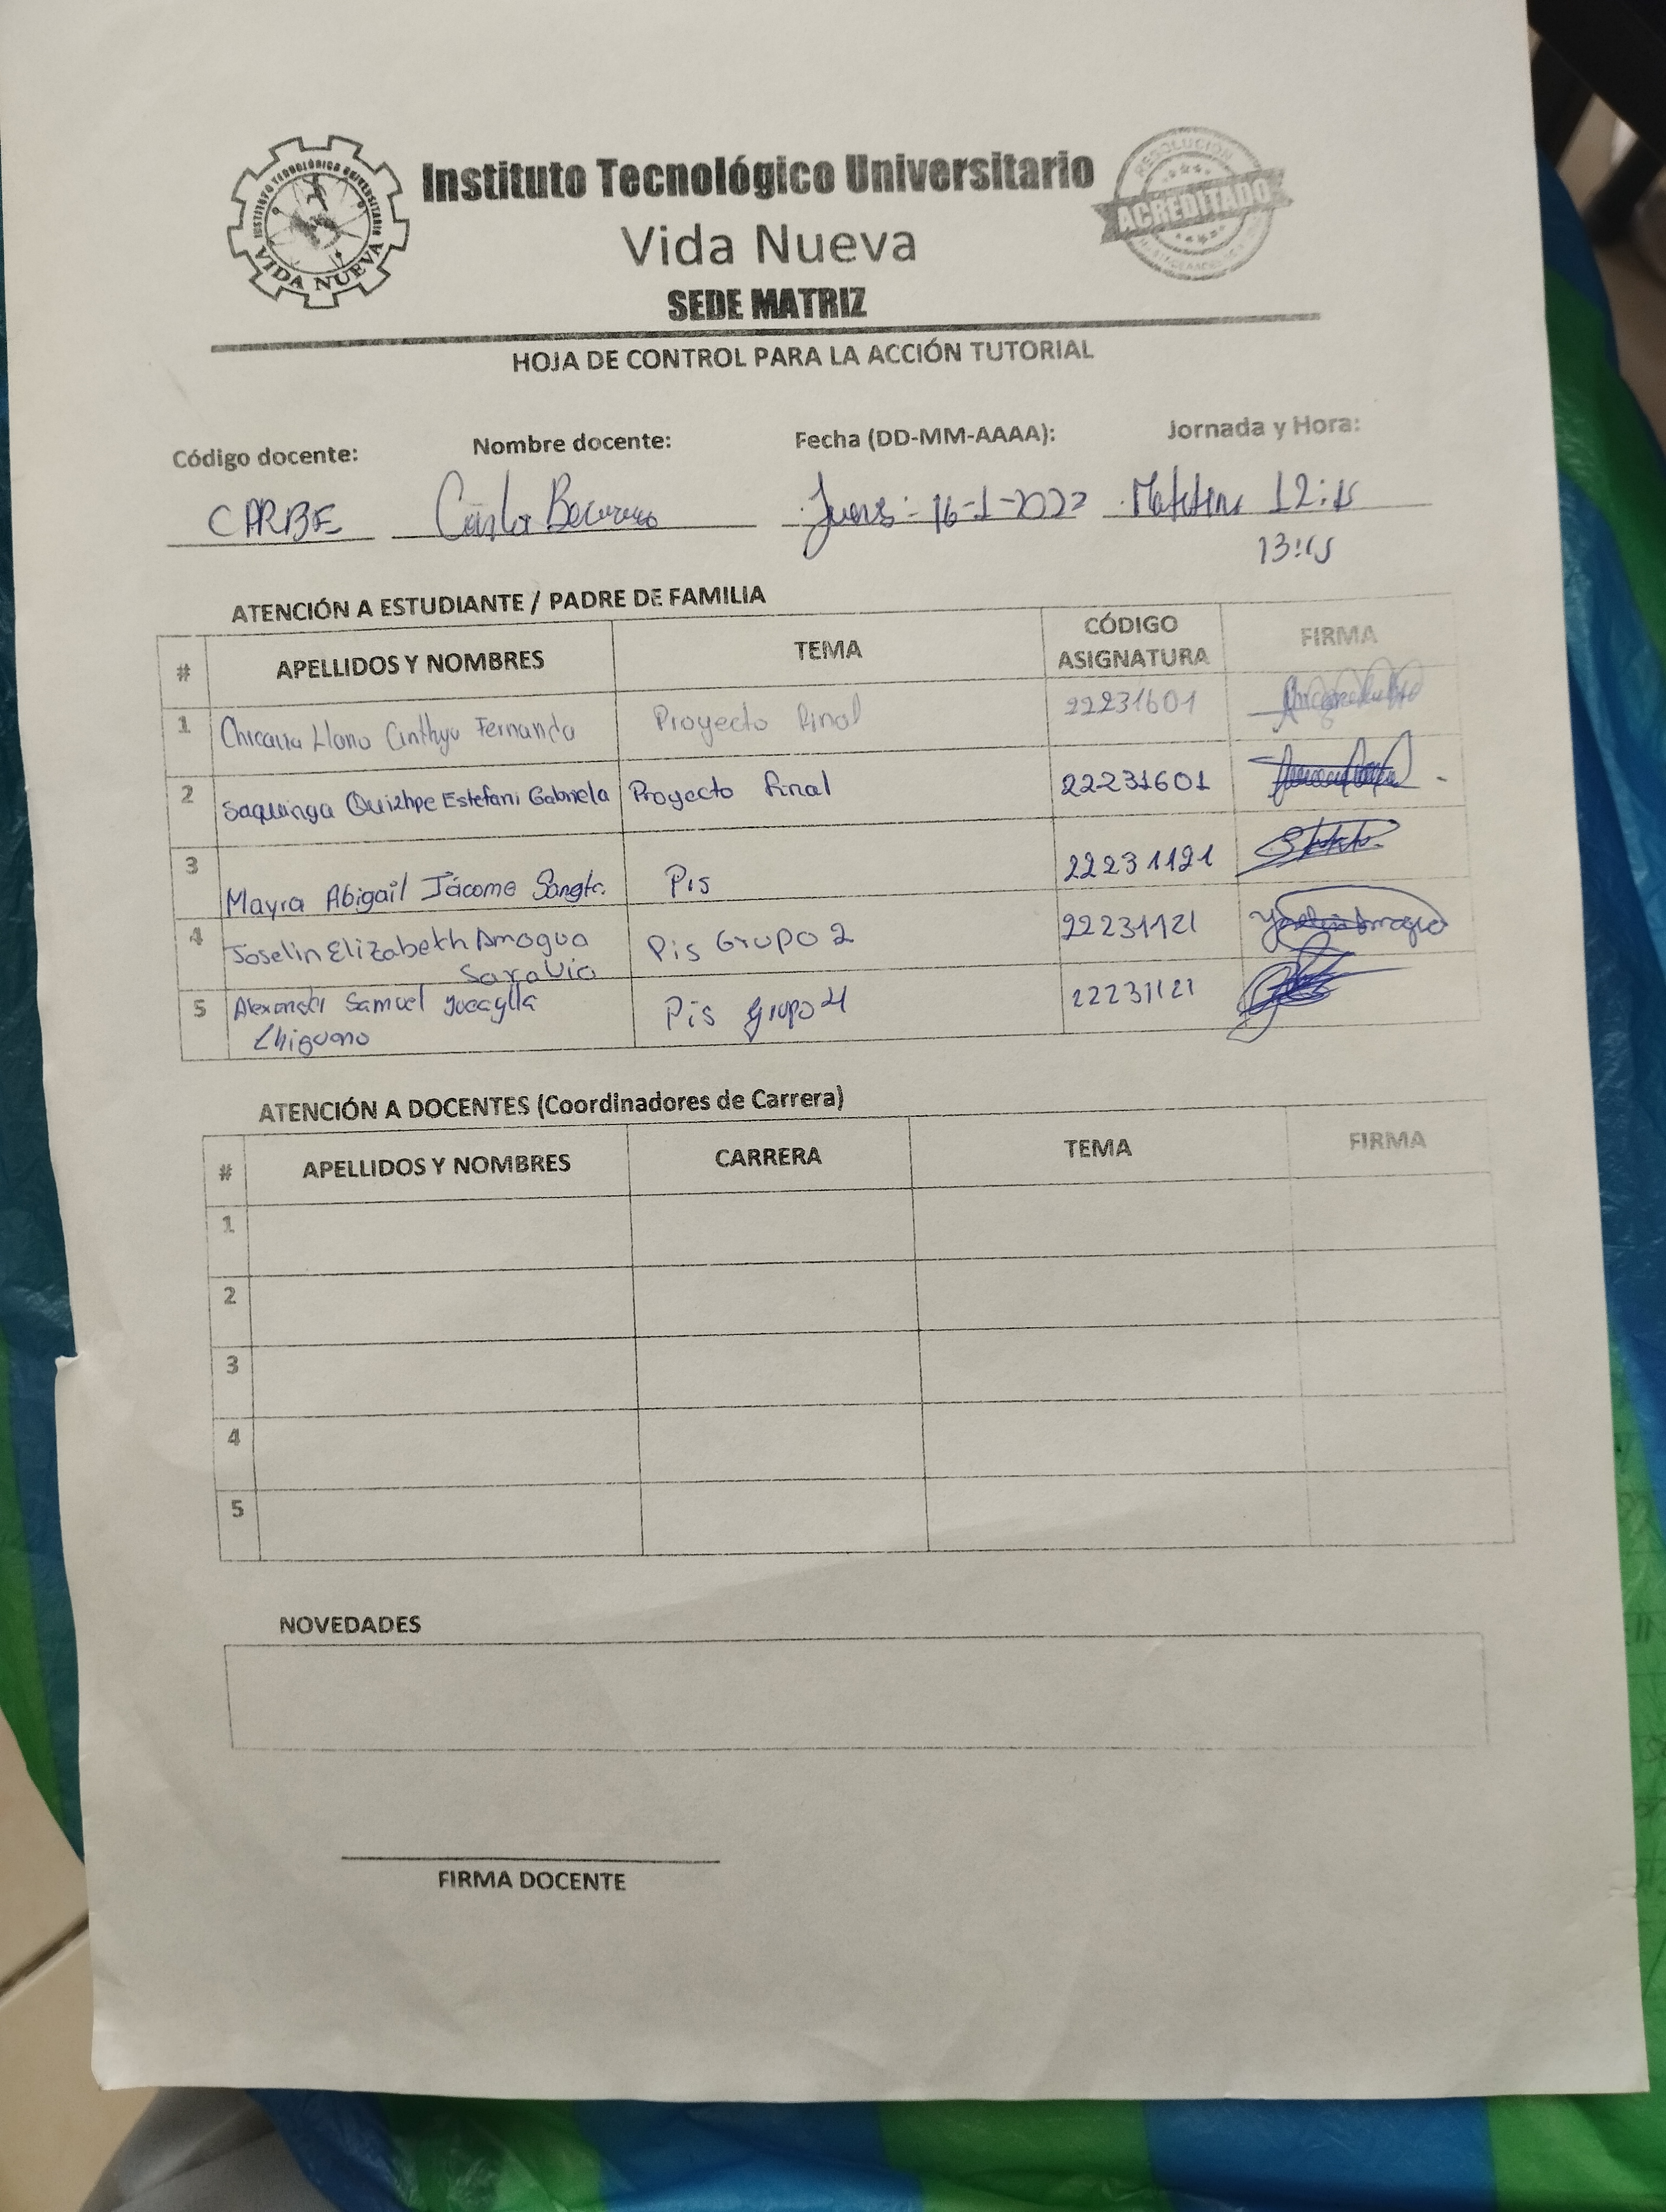 INSTITUTO TECNOLÓGICO UNIVERSITARIO
VIDA NUEVA
Instituto Tecnológico Universitario
Vida Nueva
SEDE MATRIZ
RESOLUCIÓN
ACREDITADO
HOJA DE CONTROL PARA LA ACCIÓN TUTORIAL
Código docente: Nombre docente: Fecha (DD-MM-AAAA): Jornada y Hora:
CARBE Carla 16-1- 12:15
13:15
ATENCIÓN A ESTUDIANTE / PADRE DE FAMILIA
# APELLIDOS Y NOMBRES TEMA CÓDIGO ASIGNATURA FIRMA
1 Llano Cinthya Fernanda Proyecto final 22231601
2 Saquinga Quizhpe Estefani Gabriela Proyecto final 22231601
3 Mayra Abigail Jácome Pis 22231121
4 Joselin Elizabeth Amagua Saravia Pis Grupo 2 22231121
5 Alexander Samuel Chiguano Pis grupo 4 22231121
ATENCIÓN A DOCENTES (Coordinadores de Carrera)
# APELLIDOS Y NOMBRES CARRERA TEMA FIRMA
1
2
3
4
5
NOVEDADES
FIRMA DOCENTE